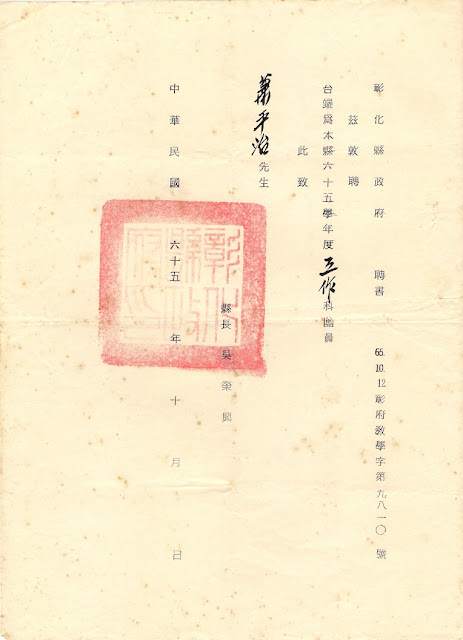 彰化縣政府 聘書 65.10.12彰府教學字第九八一〇號
茲敦聘
台端為本縣六十五學年度工作科輔導員
此致
蕭平治先生
縣長 吳榮興
中華民國 六十五 年 十 月 日
彰化縣政府印